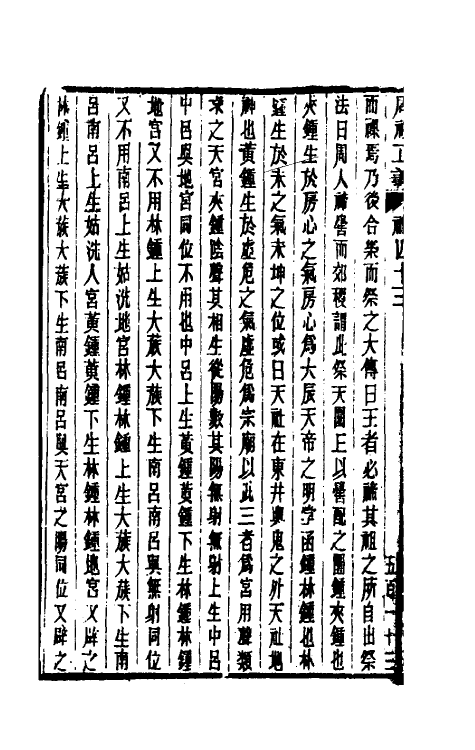 周禮正義 禮四十三
而祼焉乃後合樂而祭之大傳曰王者必禘其祖之所自出祭
法曰周人禘嚳而郊稷謂此祭天圜丘以嚳配之圜鍾夾鍾也
夾鍾生於房心之氣房心爲大辰天帝之明堂函鍾林鍾也林
鍾生於未之氣未坤之位或曰天社在東井輿鬼之外天社地
神也黃鍾生於虛危之氣虛危爲宗廟以此三者爲宮用聲類
求之天宮夾鍾陰聲其相生從陽數其陽無射無射上生中呂
中呂與地宮同位不用也中呂上生黃鍾黃鍾下生林鍾林鍾
地宮又不用林鍾上生大蔟大蔟下生南呂南呂與無射同位
又不用南呂上生姑洗地宮林鍾林鍾上生大蔟大蔟下生南
呂南呂上生姑洗人宮黃鍾黃鍾下生林鍾林鍾地宮又辟之
林鍾上生大蔟大蔟下生南呂南呂與天宮之陽同位又辟之